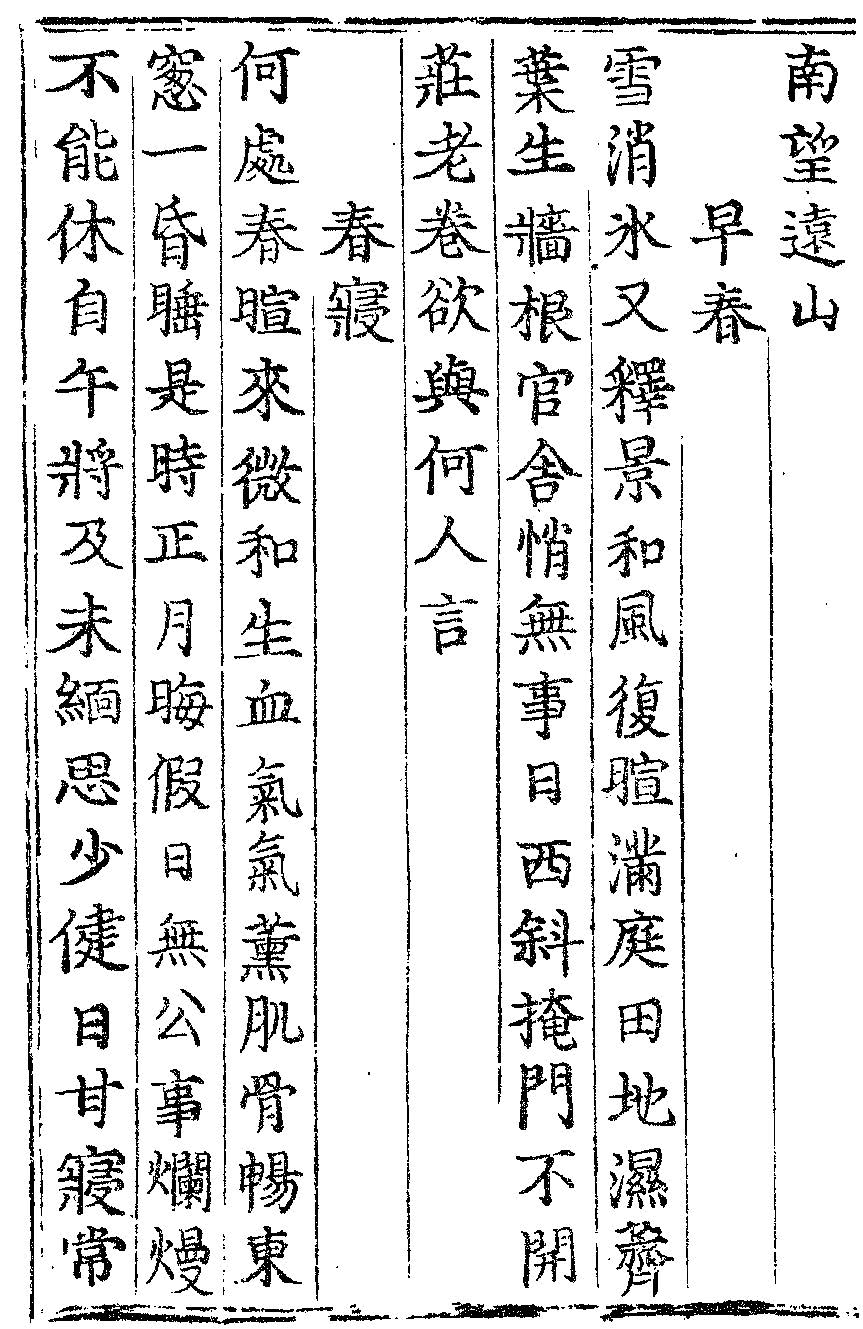 南望遠山
早春
雪消氷又釋景和風復暄滿庭田地濕薺
葉生牆根官舍悄無事日西斜掩門不開
莊老卷欲與何人言
春寢
何處春暄來微和生血氣氣薰肌骨暢東
窻一昏睡是時正月晦假日無公事爛熳
不能休自午將及未緬思少健日甘寢常